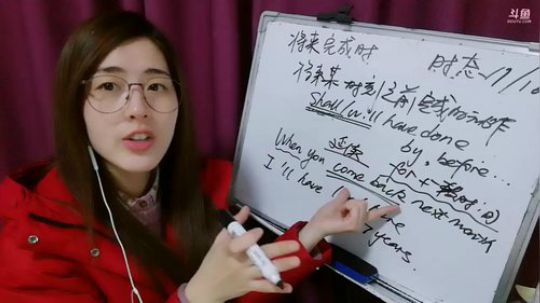 斗鱼
将来完成时
时态
将来某时刻之前完成的动作
Shall/will have done
by, before...
延续
for + 段时间
When you come back next month
I'll have
years.